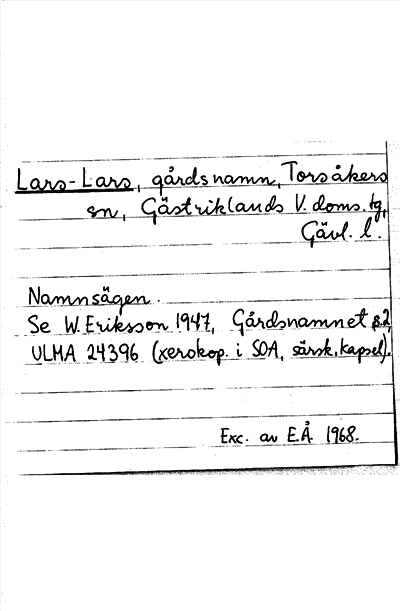 Lars-Lars, gårdsnamn, Torsåkers
sn, Gästriklands V. doms. tg,
Gävl. l.
Namnsägen.
Se W. Eriksson 1947, Gårdsnamnet s.2,
ULMA 24396 (xerokop. i SOA, särsk. kapsel).
Exc. av E.Å. 1968.